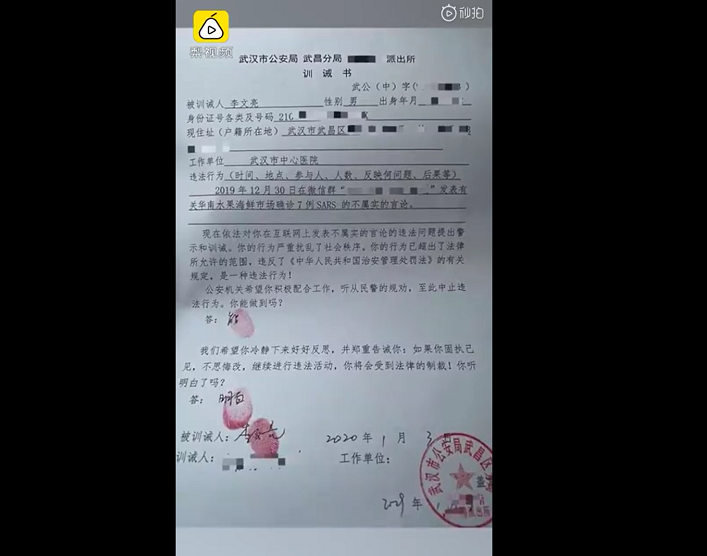 梨视频
秒拍
武汉市公安局 武昌分局 派出所
训 诫 书
武公（中）字（ ）
被训诫人 李文亮 性别 男 出身年月
身份证号各类及号码 210
现住址（户籍所在地） 武汉市武昌区
工作单位 武汉市中心医院
违法行为（时间、地点、参与人、人数、反映何问题、后果等）
2019年12月30日在微信群“ ”发表有
关华南水果海鲜市场确诊7例SARS的不属实的言论。
现在依法对你在互联网上发表不属实的言论的违法问题提出警
示和训诫。你的行为严重扰乱了社会秩序。你的行为已超出了法律
所允许的范围，违反了《中华人民共和国治安管理处罚法》的有关
规定，是一种违法行为！
公安机关希望你积极配合工作，听从民警的规劝，至此中止违
法行为。你能做到吗？
答：能
我们希望你冷静下来好好反思，并郑重告诫你：如果你固执己
见，不思悔改，继续进行违法活动，你将会受到法律的制裁！你听
明白了吗？
答：明白
被训诫人：李文亮 2020年1月3
训诫人： 工作单位：
武汉市公安局武昌区
年